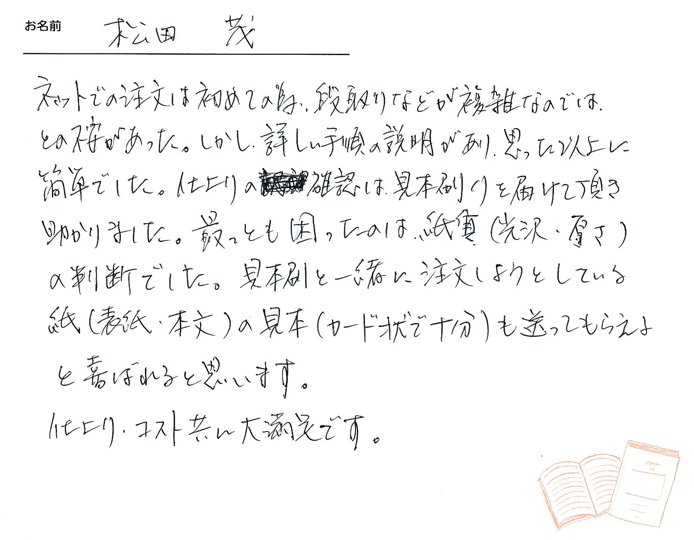 お名前 松田 茂
ネットでの注文は初めての為、段取りなどが複雑なのでは、
との不安があった。しかし、詳しい手順の説明があり、思った以上に
簡単でした。仕上りの確認は、見本刷りを届けて頂き
助かりました。最っとも困ったのは、紙質(光沢・厚さ)
の判断でした。見本刷と一緒に注文しようとしている
紙(表紙・本文)の見本(カード状で十分)も送ってもらえる
と喜ばれると思います。
仕上り・コスト共に大満足です。